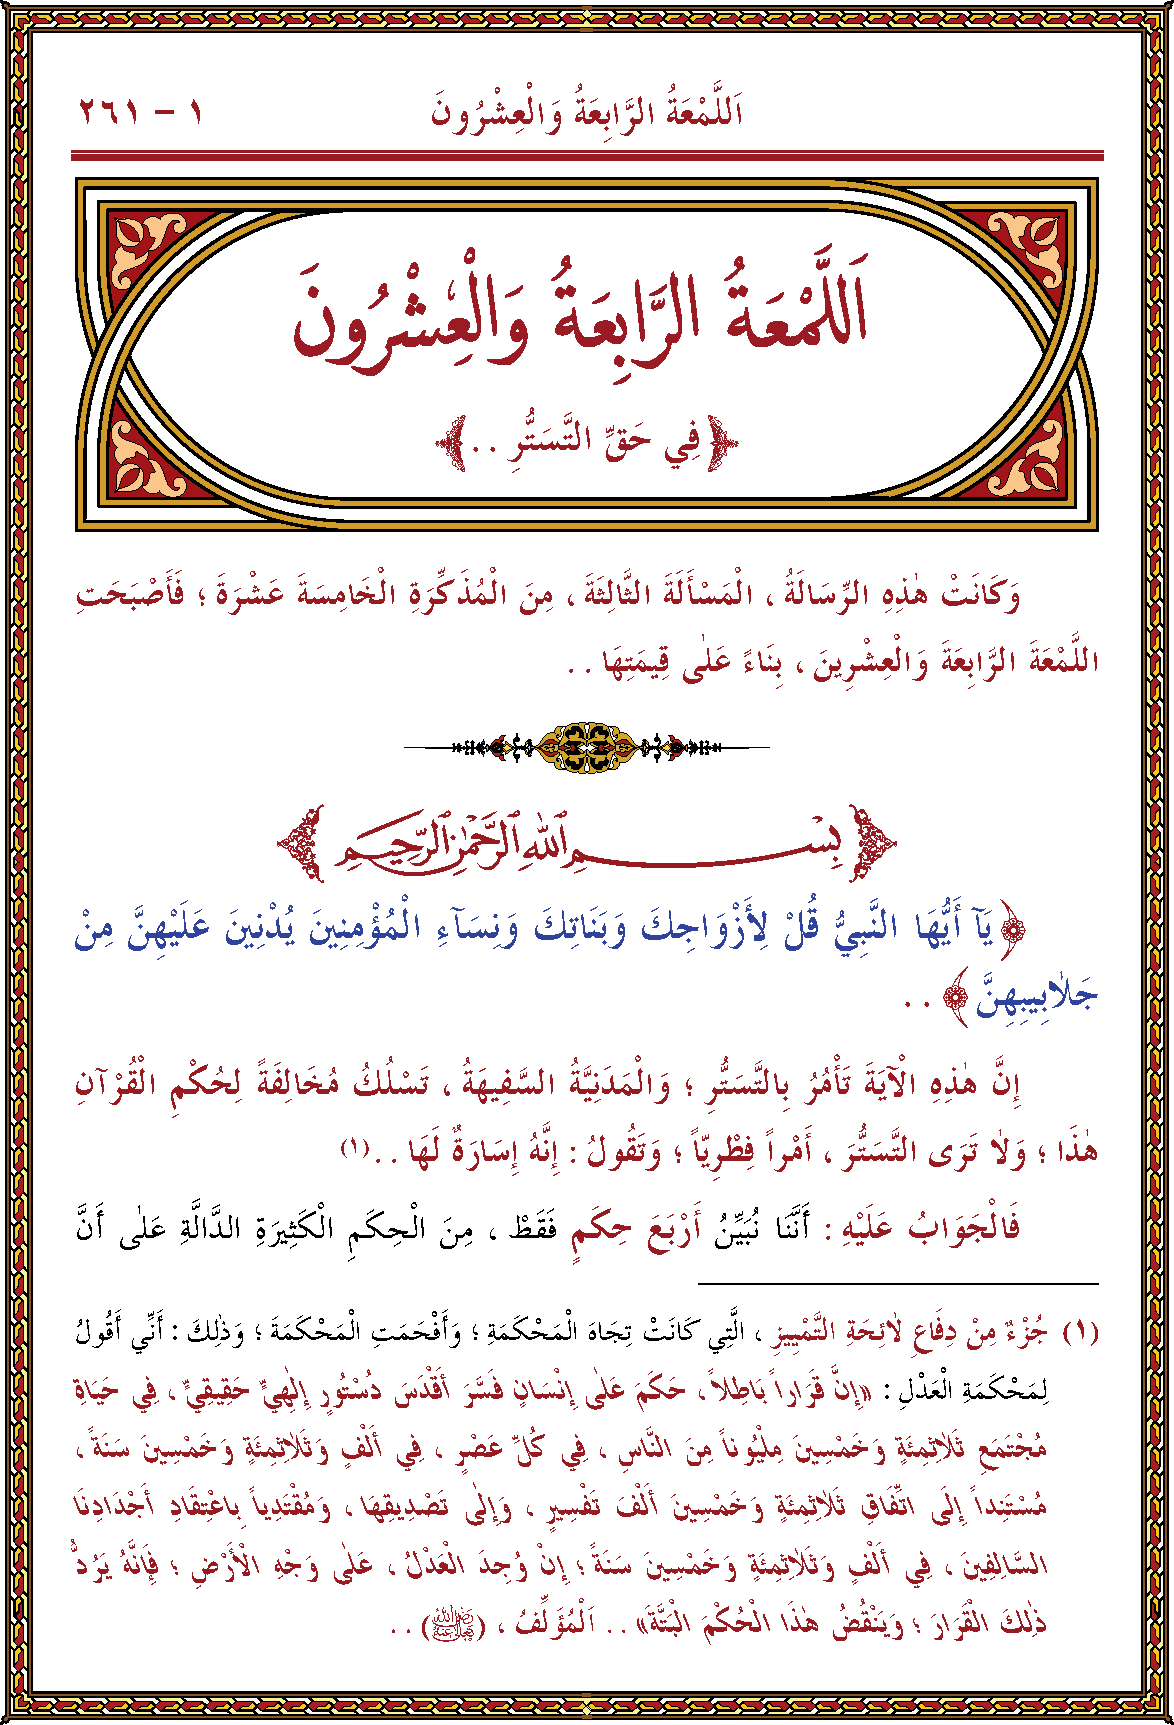 اَللَّمْعَةُ الرَّابِعَةُ وَالْعِشْرُونَ
١ – ٢٦١
اَللَّمْعَةُ الرَّابِعَةُ وَالْعِشْرُونَ
﴿فِي حَقِّ التَّسَتُّرِ . .﴾
وَكَانَتْ هٰذِهِ الرِّسَالَةُ ، الْمَسْأَلَةَ الثَّالِثَةَ ، مِنَ الْمُذَكِّرَةِ الْخَامِسَةَ عَشْرَةَ ؛ فَأَصْبَحَتِ
اللَّمْعَةَ الرَّابِعَةَ وَالْعِشْرِينَ ، بِنَاءً عَلٰى قِيمَتِهَا . .
بِسْمِ اللّٰهِ الرَّحْمٰنِ الرَّحِيمِ
﴿يَآ أَيُّهَا النَّبِيُّ قُلْ لِأَزْوَاجِكَ وَبَنَاتِكَ وَنِسَآءِ الْمُؤْمِنِينَ يُدْنِينَ عَلَيْهِنَّ مِنْ
جَلَابِيبِهِنَّ﴾ . .
إِنَّ هٰذِهِ الْآيَةَ تَأْمُرُ بِالتَّسَتُّرِ ؛ وَالْمَدَنِيَّةُ السَّفِيهَةُ ، تَسْلُكُ مُخَالِفَةً لِحُكْمِ الْقُرْآنِ
هٰذَا ؛ وَلَا تَرَى التَّسَتُّرَ ، أَمْراً فِطْرِيّاً ؛ وَتَقُولُ : إِنَّهُ إِسَارَةٌ لَهَا . .(١)
فَالْجَوَابُ عَلَيْهِ : أَنَّنَا نُبَيِّنُ أَرْبَعَ حِكَمٍ فَقَطْ ، مِنَ الْحِكَمِ الْكَثِيرَةِ الدَّالَّةِ عَلٰى أَنَّ
(١) جُزْءٌ مِنْ دِفَاعِ لَائِحَةِ التَّمْيِيزِ ، الَّتِي كَانَتْ تِجَاهَ الْمَحْكَمَةِ ؛ وَأَفْحَمَتِ الْمَحْكَمَةَ ؛ وَذٰلِكَ : أَنِّي أَقُولُ
لِمَحْكَمَةِ الْعَدْلِ : «إِنَّ قَرَاراً بَاطِلاً ، حَكَمَ عَلٰى إِنْسَانٍ فَسَّرَ أَقْدَسَ دُسْتُورٍ إِلٰهِيٍّ حَقِيقِيٍّ ، فِي حَيَاةِ
مُجْتَمَعِ ثَلَاثِمِئَةٍ وَخَمْسِينَ مِلْيُوناً مِنَ النَّاسِ ، فِي كُلِّ عَصْرٍ ، فِي أَلْفٍ وَثَلَاثِمِئَةٍ وَخَمْسِينَ سَنَةً ،
مُسْتَنِداً إِلَى اتِّفَاقِ ثَلَاثِمِئَةٍ وَخَمْسِينَ أَلْفَ تَفْسِيرٍ ، وَإِلٰى تَصْدِيقِهَا ، وَمُقْتَدِياً بِاعْتِقَادِ أَجْدَادِنَا
السَّالِفِينَ ، فِي أَلْفٍ وَثَلَاثِمِئَةٍ وَخَمْسِينَ سَنَةً ؛ إِنْ وُجِدَ الْعَدْلُ ، عَلٰى وَجْهِ الْأَرْضِ ؛ فَإِنَّهُ يَرُدُّ
ذٰلِكَ الْقَرَارَ ؛ وَيَنْقُضُ هٰذَا الْحُكْمَ الْبَتَّةَ» . . اَلْمُؤَلِّفُ ، (رَضِيَ اللهُ تَعَالَى عَنْهُ) . .